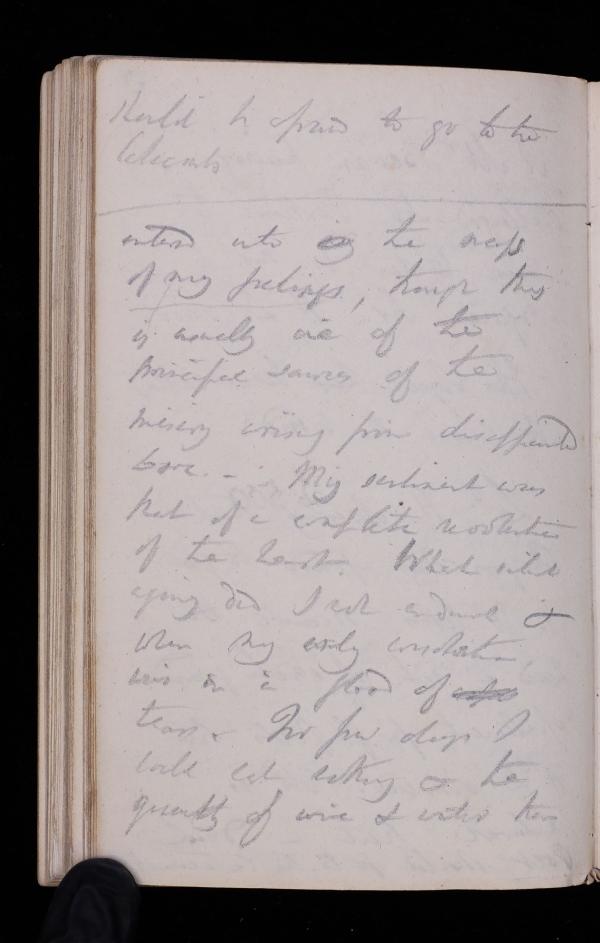 to go to the
entered into the
of my feelings, though this
is usually one of the
principal sources of the
misery arising from disappointed
love. - My sentiment was
that of a complete revolution
of the heart. What silent
agony did I not endure &
when my only consolation
was in a flood of
tears. For few days I
could eat nothing & the
quantity of wine & water